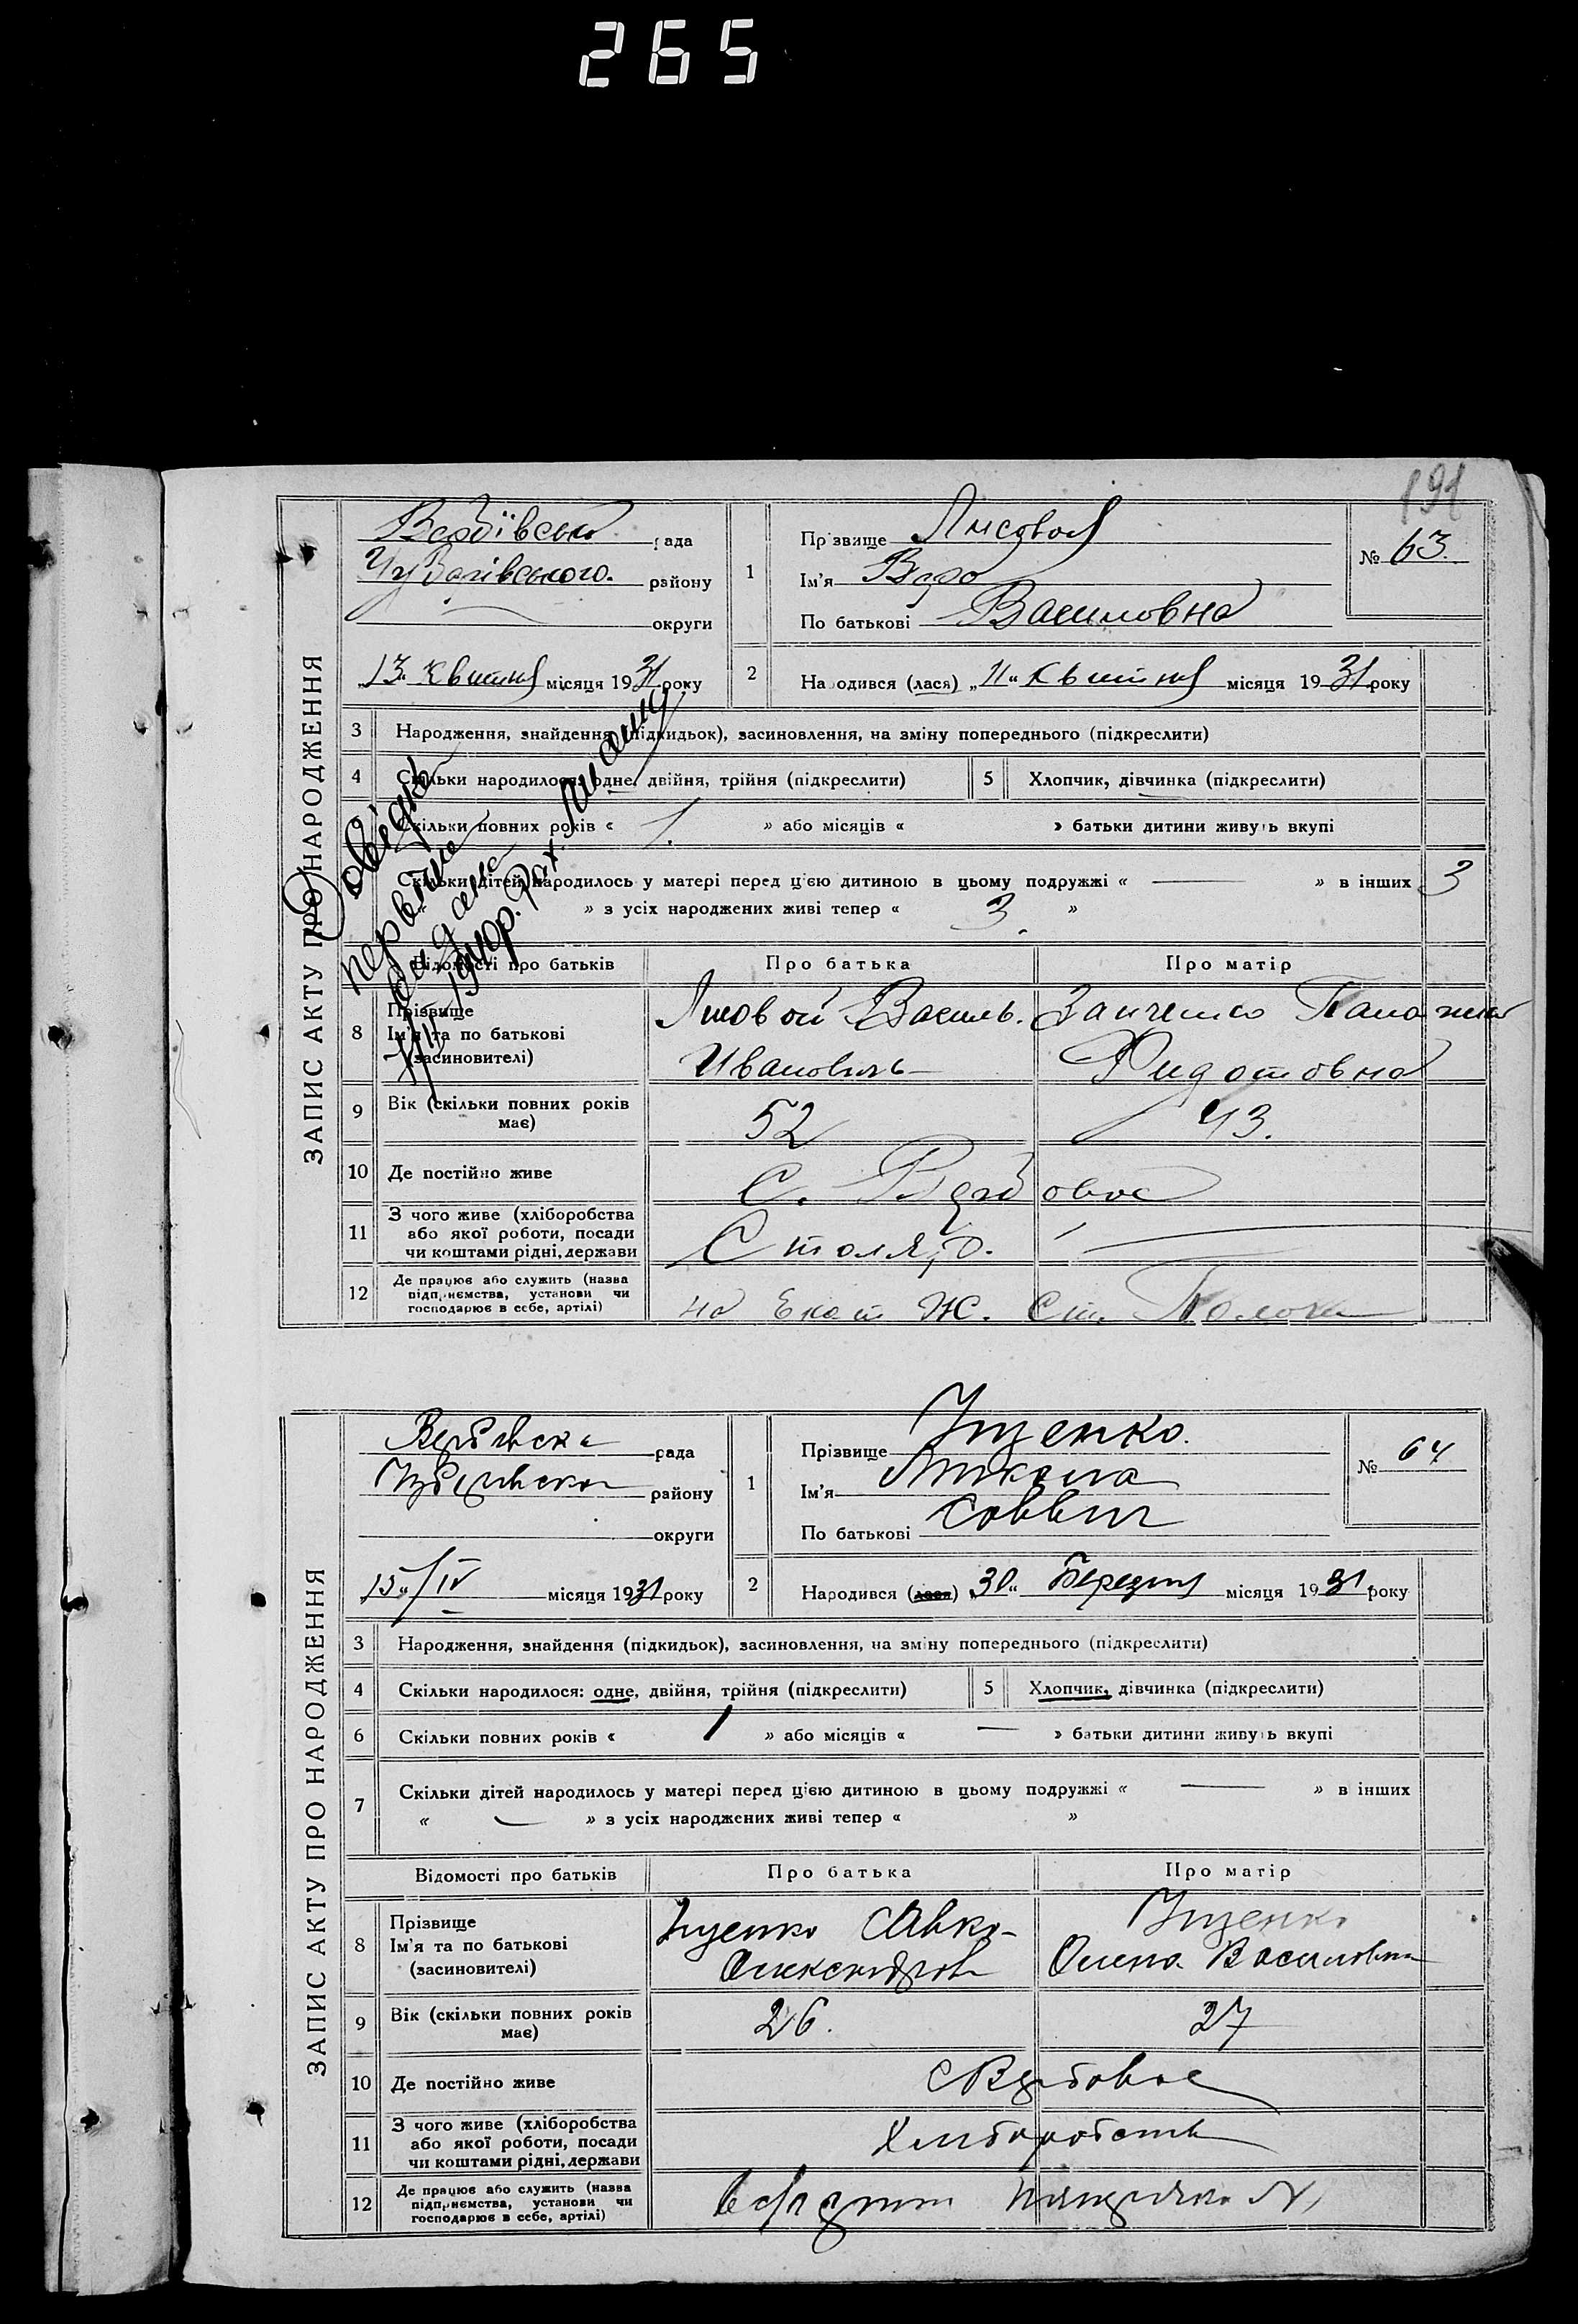 265
191
ЗАПИС АКТУ ПРО НАРОДЖЕННЯ
Вербівська рада
Чубарівського. району
округи
„13" квітня місяця 1931 року
1
Прізвище Лисовая
Ім'я Вера
По батькові Василовна
№ 63.
2
Народився (лася) „11" квітня місяця 1931 року
3 Народження, знайдення (підкидьок), засиновлення, на зміну попереднього (підкреслити)
4 Скільки народилося: одне, двійня, трійня (підкреслити)
5 Хлопчик, дівчинка (підкреслити)
Скільки повних років « 1. » або місяців « » батьки дитини живуть вкупі
Скільки дітей народилось у матері перед цією дитиною в цьому подружжі « — » в інших 3
« » з усіх народжених живі тепер « 3. »
Відомості про батьків
Про батька
Про матір
8 Прізвище
Ім'я та по батькові
(засиновителі)
Лисовой Василь.
Ивановичь
Занченко
Федотовна
9 Вік (скільки повних років має)
52
43.
10 Де постійно живе
С. Вербовое
11 З чого живе (хліборобства
або якої роботи, посади
чи коштами рідні, держави
Столяр.
—
12 Де працює або служить (назва
підприємства, установи чи
господарює в себе, артілі)
на Екат Ж. Ст. Пологи
Довідка
первічна
видана
ЗАПИС АКТУ ПРО НАРОДЖЕННЯ
Вербівська рада
району
округи
15"/IV місяця 1931 року
1
Прізвище Іщенко.
Ім'я Микола
По батькові Саввич
№ 64
2
Народився (лася) „30" Березня місяця 1931 року
3 Народження, знайдення (підкидьок), засиновлення, на зміну попереднього (підкреслити)
4 Скільки народилося: одне, двійня, трійня (підкреслити)
5 Хлопчик, дівчинка (підкреслити)
6 Скільки повних років « 1 » або місяців « — » батьки дитини живуть вкупі
7 Скільки дітей народилось у матері перед цією дитиною в цьому подружжі « — » в інших
« — » з усіх народжених живі тепер « »
Відомості про батьків
Про батька
Про матір
8 Прізвище
Ім'я та по батькові
(засиновителі)
Іщенко Савко
Олександров
Іщенко
Олена Василовна
9 Вік (скільки повних років має)
26.
27
10 Де постійно живе
С Вербовое
11 З чого живе (хліборобства
або якої роботи, посади
чи коштами рідні, держави
Хліборобств
12 Де працює або служить (назва
підприємства, установи чи
господарює в себе, артілі)